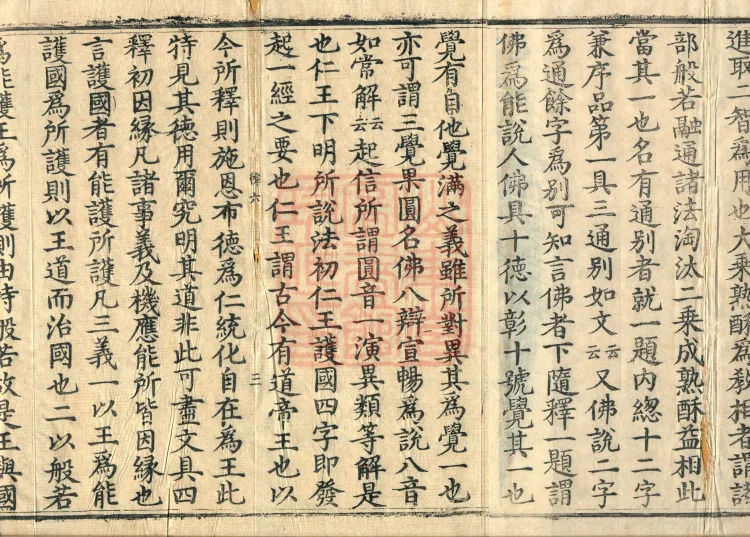 進取二智爲用也大乘熟酥爲教相者謂諸
部般若融通諸法淘汰二乗成熟酥益相此
當其一也名有通別者就一題内緫十二字
兼序品第一具三通別如文云云又佛說二字
爲通餘字爲別可知言佛者下隨釋一題謂
佛爲能說人佛具十德以彰十號覺其一也
覺有自他覺滿之義雖所對異其爲覺一也
亦可謂三覺果圓名佛八辯宣暢爲說八音
如常解云云起信所謂圓音一演異類等解是
也仁王下明所說法初仁王護國四字即發
起一經之要也仁王謂古今有道帝王也以
六 三
今所釋則施恩布德為仁統化自在爲王此
特見其德用爾究明其道非此可盡文具四
釋初因緣凡諸事義及機應能所皆因緣也
言護國者有能護所護凡三義一以王爲能
護國爲所護則以王道而治國也二以般若
爲能護王爲所護則由持般若故是王與國